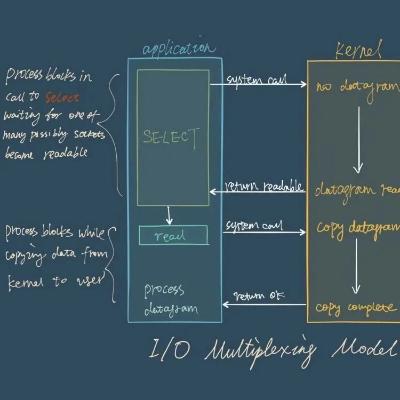 application
Kernel
process blocks in
call to select
waiting for one of
many possibly sockets
become readable
SELECT
system call
no datagram
return readable
datagram read
process blocks while
copying data from
kernel to user
read
system call
copy datagram
process
datagram
return OK
copy complete
I/O Multiplexing Model